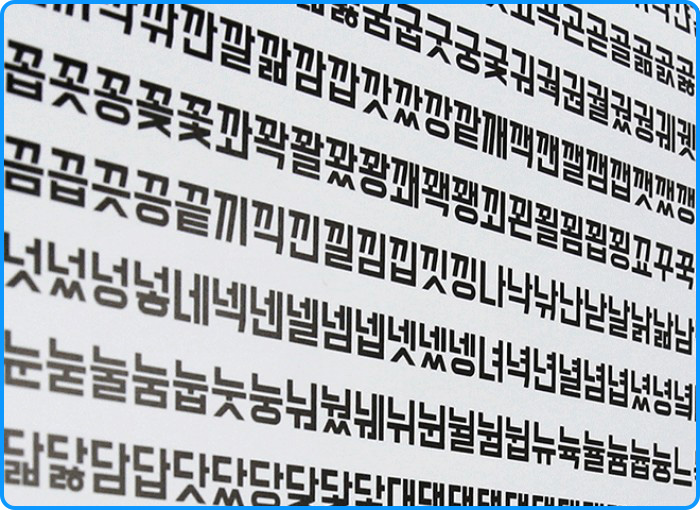 고곡곤곧골곪곬곯
굶굻굼굽굿궁궂궈궉권궐궜궝궤궷
깍깎깐깔깖깜깝깟깠깡깥깨깩깬깰깸깹깻깼깽
꼽꼿꽁꽂꽃꽈꽉꽐꽜꽝꽤꽥꽹꾀꾄꾈꾐꾑꾕꾜꾸꾹
끔끕끗끙끝끼끽낀낄낌낍낏낑나낙낚난낟날낡낢남
넛넜넝넣네넥넨넬넴넵넷넸넹녀녁년녈념녑녔녕녘
눈눋눌눔눕눗눙눠눴눼뉘뉜뉠뉨뉩뉴뉵뉼늄늅늉느
닮닳담답닷닸당닺닻닿대댁댄댈댐댑